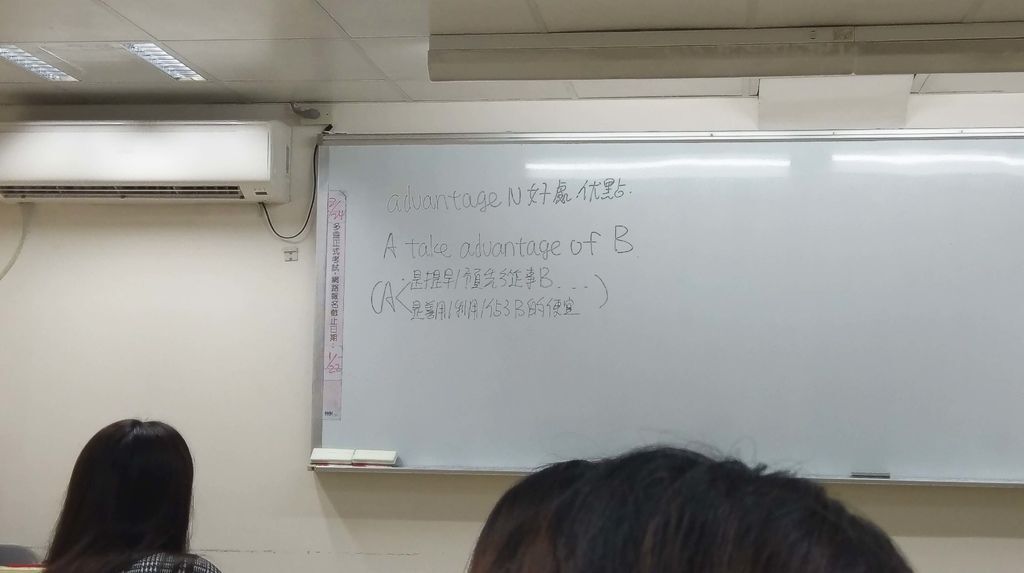 advantage N 好處.优點.
A take advantage of B.
(A 是提早/預先從事B....)
是善用/利用/佔了B的便宜
2/24 多益正式考試,網路報名截止日期: 1/22